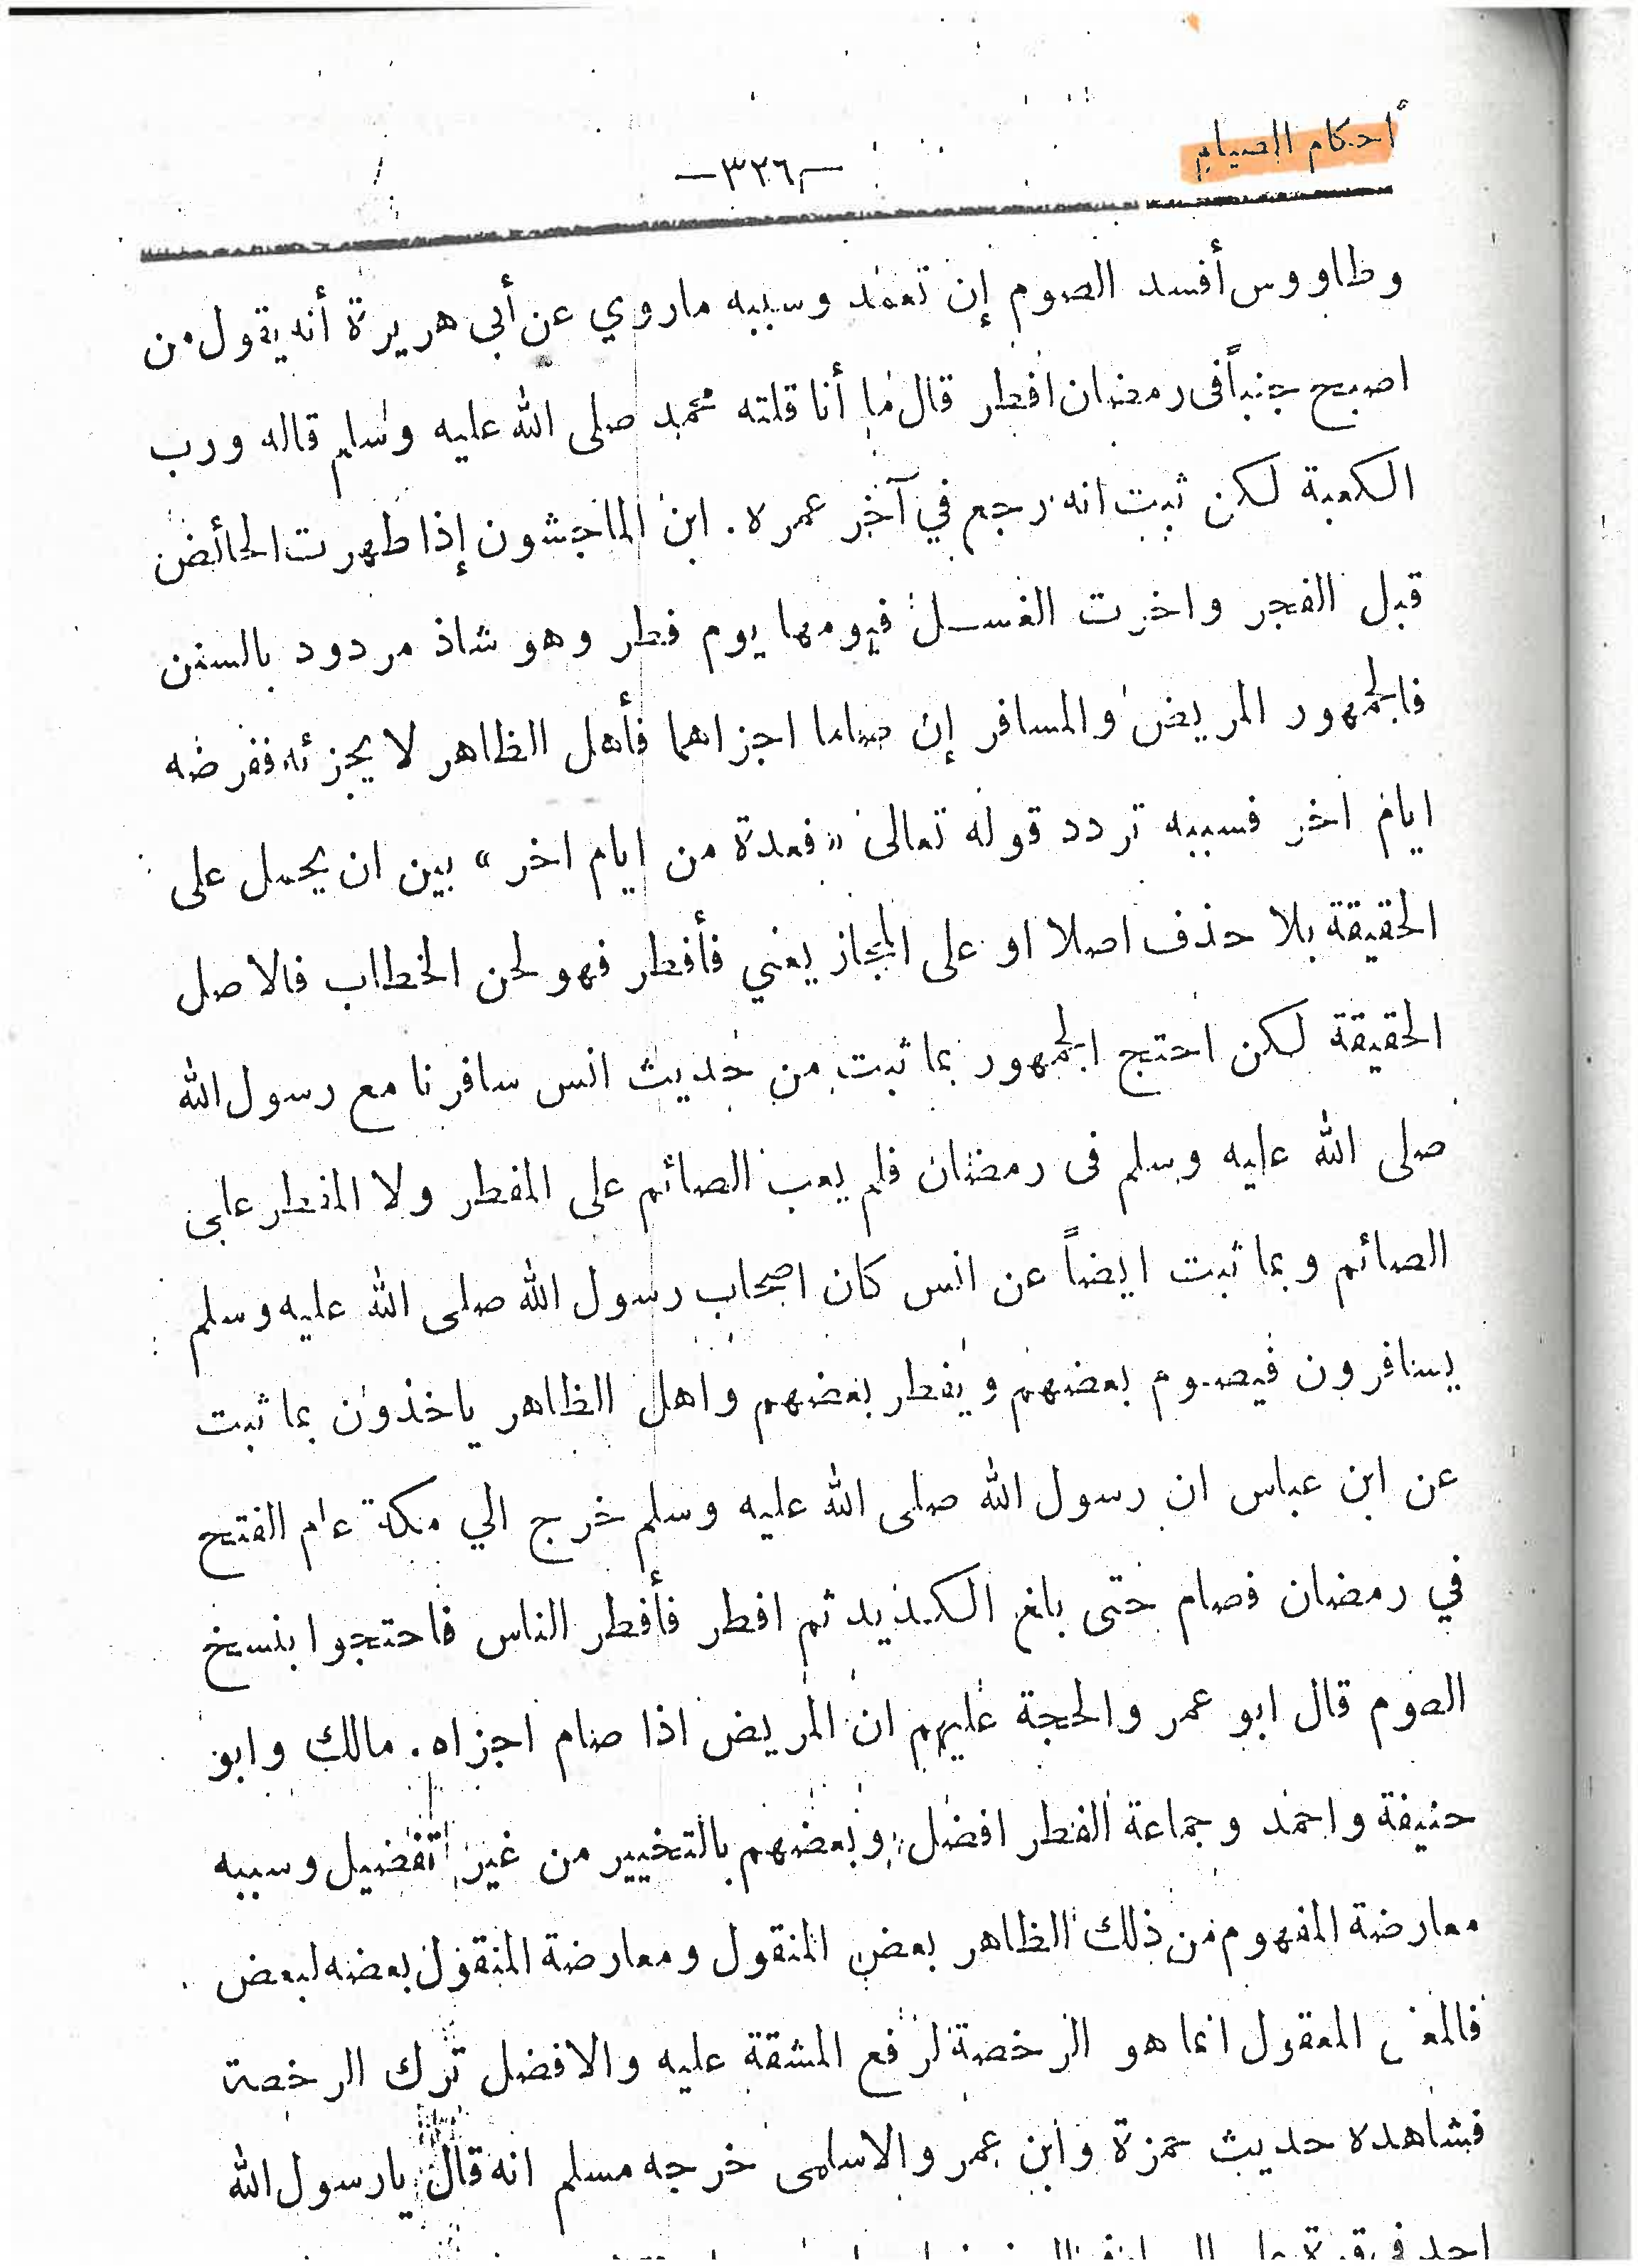 أحكام الصيام
—٣٢٦—
وطاووس أفسد الصوم إن تعمد وسببه ماروي عن أبى هريرة أنه يقول من
اصبح جنباً فى رمضان افطر قال ما أنا قلته محمد صلى الله عليه وسلم قاله ورب
الكعبة لكن ثبت انه رجع في آخر عمره. ابن الماجشون إذا طهرت الحائض
قبل الفجر واخرت الغسل فيومها يوم فطر وهو شاذ مردود بالسنن
فالجمهور المريض والمسافر إن صاما اجزاهما فأهل الظاهر لا يجزئه ففرضه
ايام اخر فسببه تردد قوله تعالى «فعدة من ايام اخر» بين ان يحمل على
الحقيقة بلا حذف اصلا او على المجاز يعني فأفطر فهو لحن الخطاب فالاصل
الحقيقة لكن احتج الجمهور بما ثبت من حديث انس سافرنا مع رسول الله
صلى الله عليه وسلم فى رمضان فلم يعب الصائم على المفطر ولا المفطر على
الصائم وبما ثبت ايضاً عن انس كان اصحاب رسول الله صلى الله عليه وسلم
يسافرون فيصوم بعضهم ويفطر بعضهم واهل الظاهر ياخذون بما ثبت
عن ابن عباس ان رسول الله صلى الله عليه وسلم خرج الي مكة عام الفتح
في رمضان فصام حتى بلغ الكديد ثم افطر فأفطر الناس فاحتجوا بنسخ
الصوم قال ابو عمر والحجة عليهم ان المريض اذا صام اجزاه. مالك وابو
حنيفة واحمد وجماعة الفطر افضل وبعضهم بالتخيير من غير تفضيل وسببه
معارضة المفهوم من ذلك الظاهر بعض المنقول ومعارضة المنقول بعضه لبعض
فالمعنى المعقول انما هو الرخصة لرفع المشقة عليه والافضل ترك الرخصة
فشاهده حديث حمزة وابن عمر والاسلمى خرجه مسلم انه قال يارسول الله